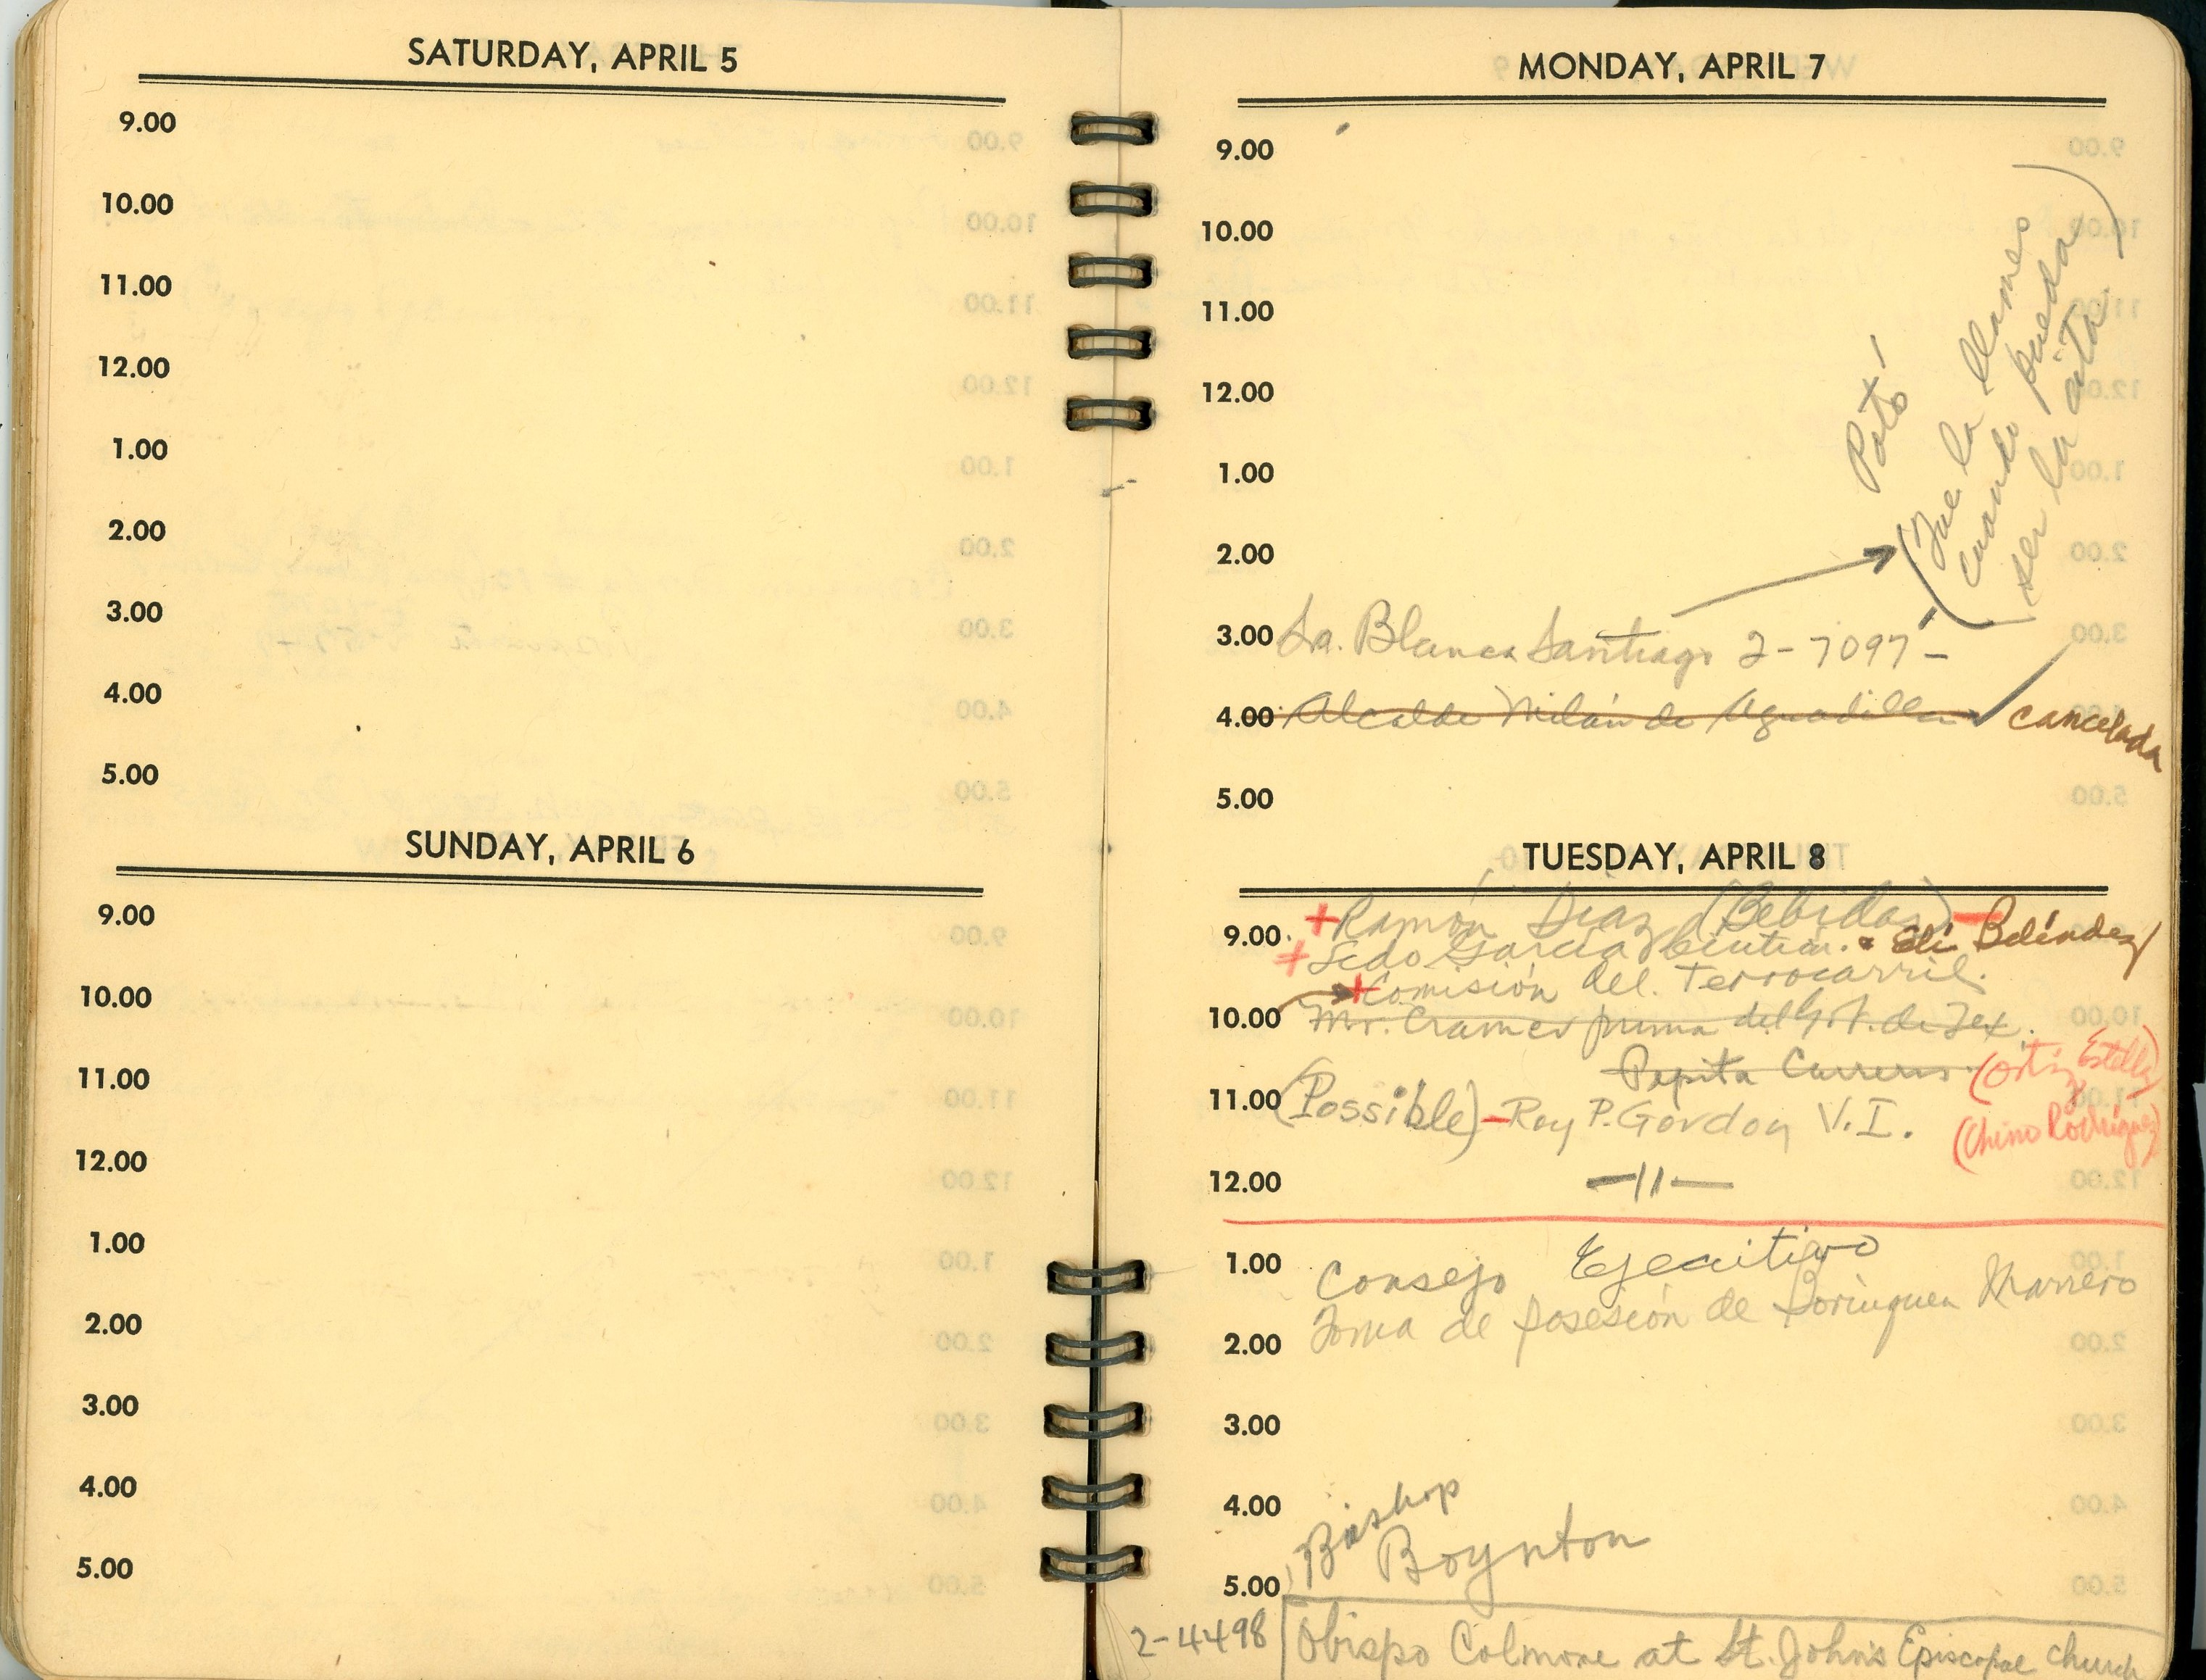 SATURDAY, APRIL 5
9.00
10.00
11.00
12.00
1.00
2.00
3.00
4.00
5.00
SUNDAY, APRIL 6
9.00
10.00
11.00
12.00
1.00
2.00
3.00
4.00
5.00
MONDAY, APRIL 7
9.00
10.00
11.00
12.00
1.00
2.00
(Que la llames
cuando pueda
ser la cita)
3.00 Sa. Blanca Santiago 2-7097-
4.00 Alcalde Milán de Aguadilla cancelada
5.00
TUESDAY, APRIL 8
+Ramón Díaz (Bebidas)-
9.00. +Lcdo García Cintrón. Eli Beléndez
+Comisión del. Ferrocarril.
10.00 Mr. Cramer prima del Gob. de Tex.
Pepita (Ortiz Estella)
11.00 (Possible)-Roy P. Gordon V.I. (Chino Rodríguez)
12.00 -11-
1.00 Consejo Ejecutivo
Toma de posesión de Borinquen Marrero
2.00
3.00
4.00 Bishop
Boynton
5.00
2-4498 Obispo Colmore at St. John's Episcopal church